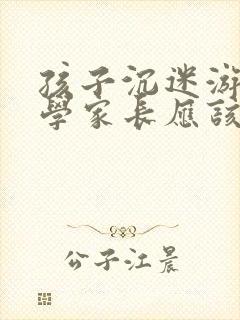 孩子沉迷游
學家長應該
公子江晨